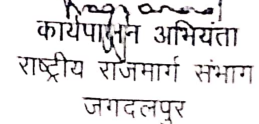 कार्यपालन अभियंता
राष्ट्रीय राजमार्ग संभाग
जगदलपुर